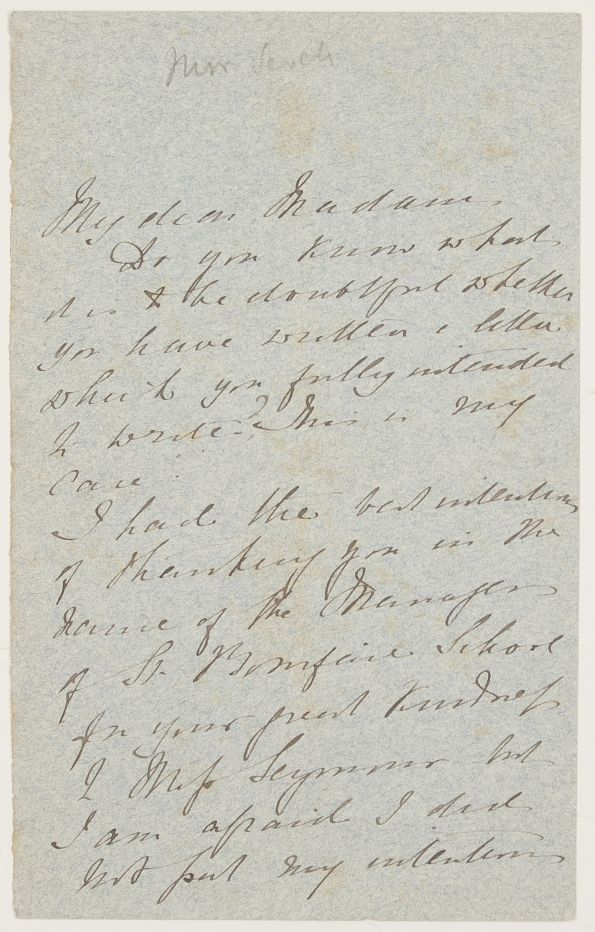 My dear Madam,
Do you know what
it is to be doubtful whether
you have written a letter
which you fully intended
to write? This is my
case.
I had the best intentions
of thanking you in the
name of the Managers
of St. Boniface School
for your great kindness
to Miss Seymour but
I am afraid I did
not put my intentions